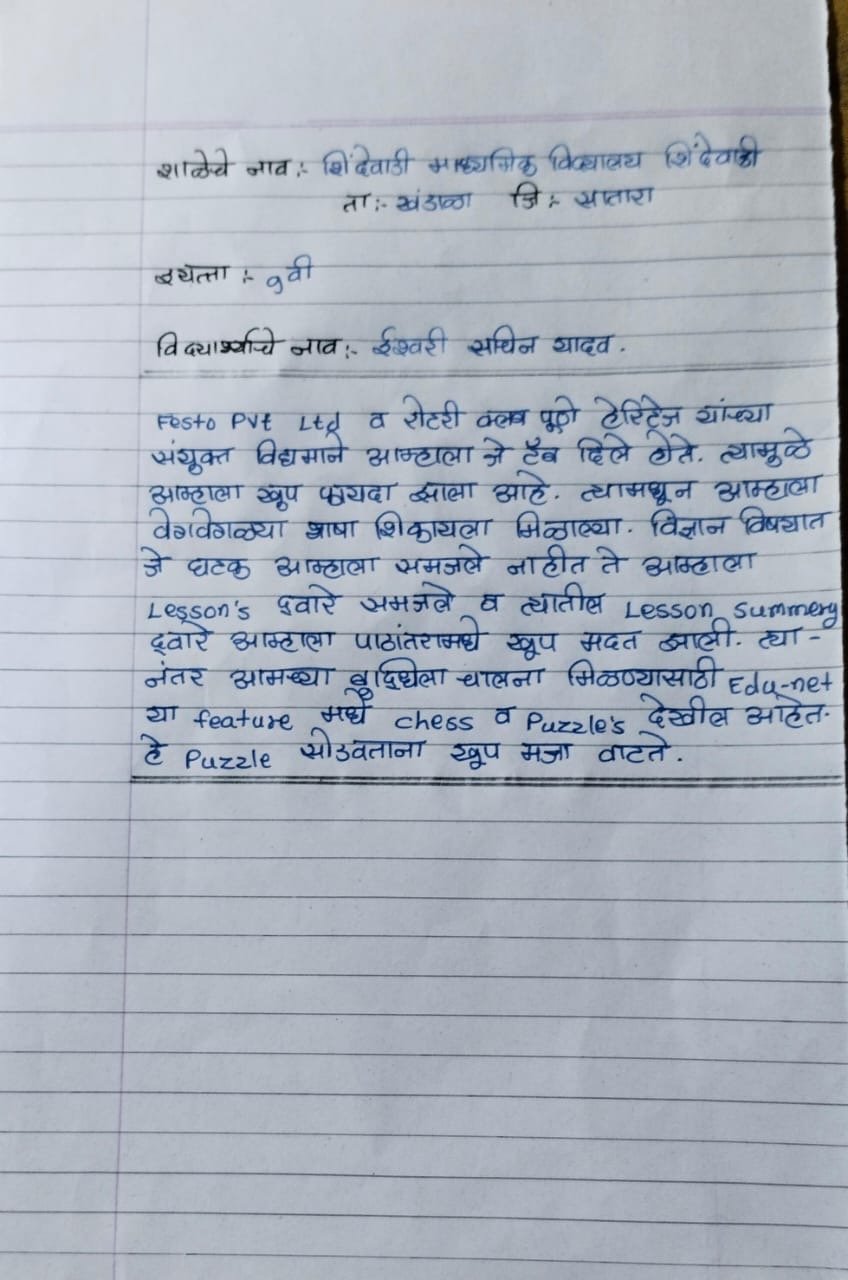 शाळेचे नाव :- शिंदेवाडी माध्यमिक विद्यालय शिंदेवाडी
ता :- खंडाळा जि :- सातारा
इयत्ता :- ९वी
विद्यार्थ्याचे नाव :- ईश्वरी सचिन यादव .
Festo Pvt Ltd व रोटरी क्लब पुणे हेरिटेज यांच्या
संयुक्त विद्यमाने आम्हाला जे टॅब दिले होते. त्यामुळे
आम्हाला खूप फायदा झाला आहे. त्यामधून आम्हाला
वेगवेगळ्या भाषा शिकायला मिळाल्या. विज्ञान विषयात
जे घटक आम्हाला समजले नाहीत ते आम्हाला
Lesson's द्वारे समजले व त्यातील Lesson summery
द्वारे आम्हाला पाठांतरामधे खूप मदत झाली. त्या -
नंतर आमच्या बुद्धिला चालना मिळण्यासाठी Edu-net
या feature मधे chess व Puzzle's देखील आहेत.
हे Puzzle सोडवताना खूप मजा वाटते .